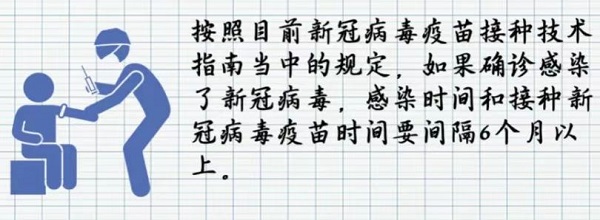 按照目前新冠病毒疫苗接种技术
指南当中的规定，如果确诊感染
了新冠病毒，感染时间和接种新
冠病毒疫苗时间要间隔6个月以
上。